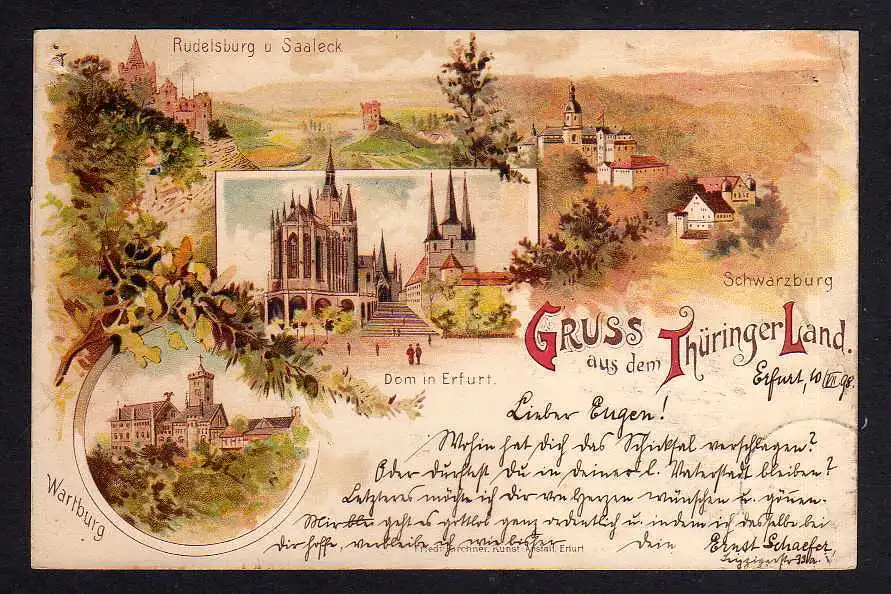 Rudelsburg u Saaleck
Schwarzburg
Gruss
aus dem Thüringer Land.
Dom in Erfurt.
Wartburg
Erfurt, 10/VII 98.
Lieber Eugen!
Wohin hat dich das Schicksal verschlagen?
Oder durftest Du in deiner l. Vaterstadt bleiben?
Letzteres möchte ich dir von Herzen wünschen u. gönnen.
Mir geht es gottlos ganz ordentlich u. indem ich dasselbe bei
dir hoffe, verbleibe ich wie bisher dein Ernst Schaefer,
Kunst-Anstalt, Erfurt